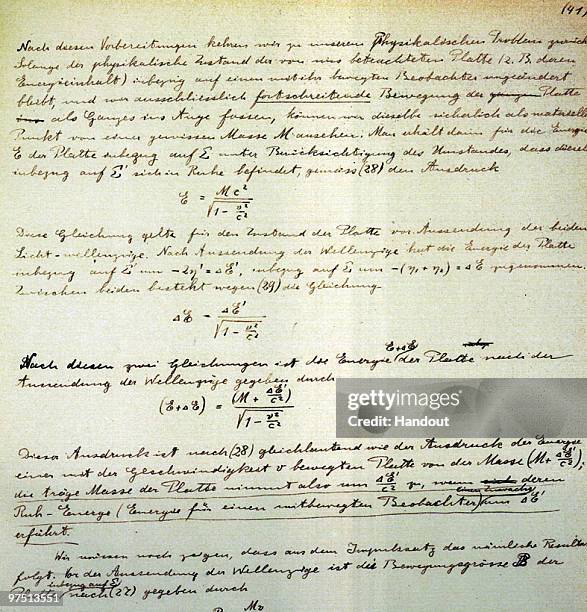 (41)
Nach diesen Vorbereitungen kehren wir zu unserem physikalischen Problem zurück
Solange der physikalische Zustand der von uns betrachteten Platte (z. B. deren
Energieinhalt) inbezug auf einen mit ihr bewegten Beobachter ungeändert
bleibt, und wir ausschliesslich fortschreitende Bewegung der ganzen Platte
als Ganzes ins Auge fassen, können wir dieselbe sicherlich als materiellen
Punkt von einer gewissen Masse M ansehen. Man erhält dann für die Energie
E der Platte inbezug auf Σ unter Berücksichtigung des Umstandes, dass dieselbe
inbezug auf Σ' sich in Ruhe befindet, gemäss (28) den Ausdruck
E = Mc² / √(1 - v²/c²)
Diese Gleichung gelte für den Zustand der Platte vor Aussendung der beiden
Licht-wellenzüge. Nach Aussendung der Wellenzüge hat die Energie der Platte
inbezug auf Σ' um -2η' = ΔE', inbezug auf Σ um -(η₁ + η₂) = ΔE zugenommen.
Zwischen beiden besteht wegen (29) die Gleichung
ΔE = ΔE' / √(1 - v²/c²)
Nach diesen zwei Gleichungen ist die Energie E+ΔE der Platte nach der
Aussendung der Wellenzüge gegeben durch
(E+ΔE) = (M + ΔE'/c²) / √(1 - v²/c²)
Dieser Ausdruck ist nach (28) gleichlautend wie der Ausdruck der Energie
einer mit der Geschwindigkeit v bewegten Platte von der Masse (M + ΔE'/c²);
die träge Masse der Platte nimmt also um ΔE'/c² zu, wenn deren
Ruh-Energie (Energie für einen mitbewegten Beobachter) einen Zuwachs um ΔE'
erfährt.
Wir müssen noch zeigen, dass aus dem Impulssatz das nämliche Resultat
folgt. Vor der Aussendung der Wellenzüge ist die Bewegungsgrösse B der
Platte inbezug auf Σ nach (27) gegeben durch
gettyimages
Credit: Handout
97513551